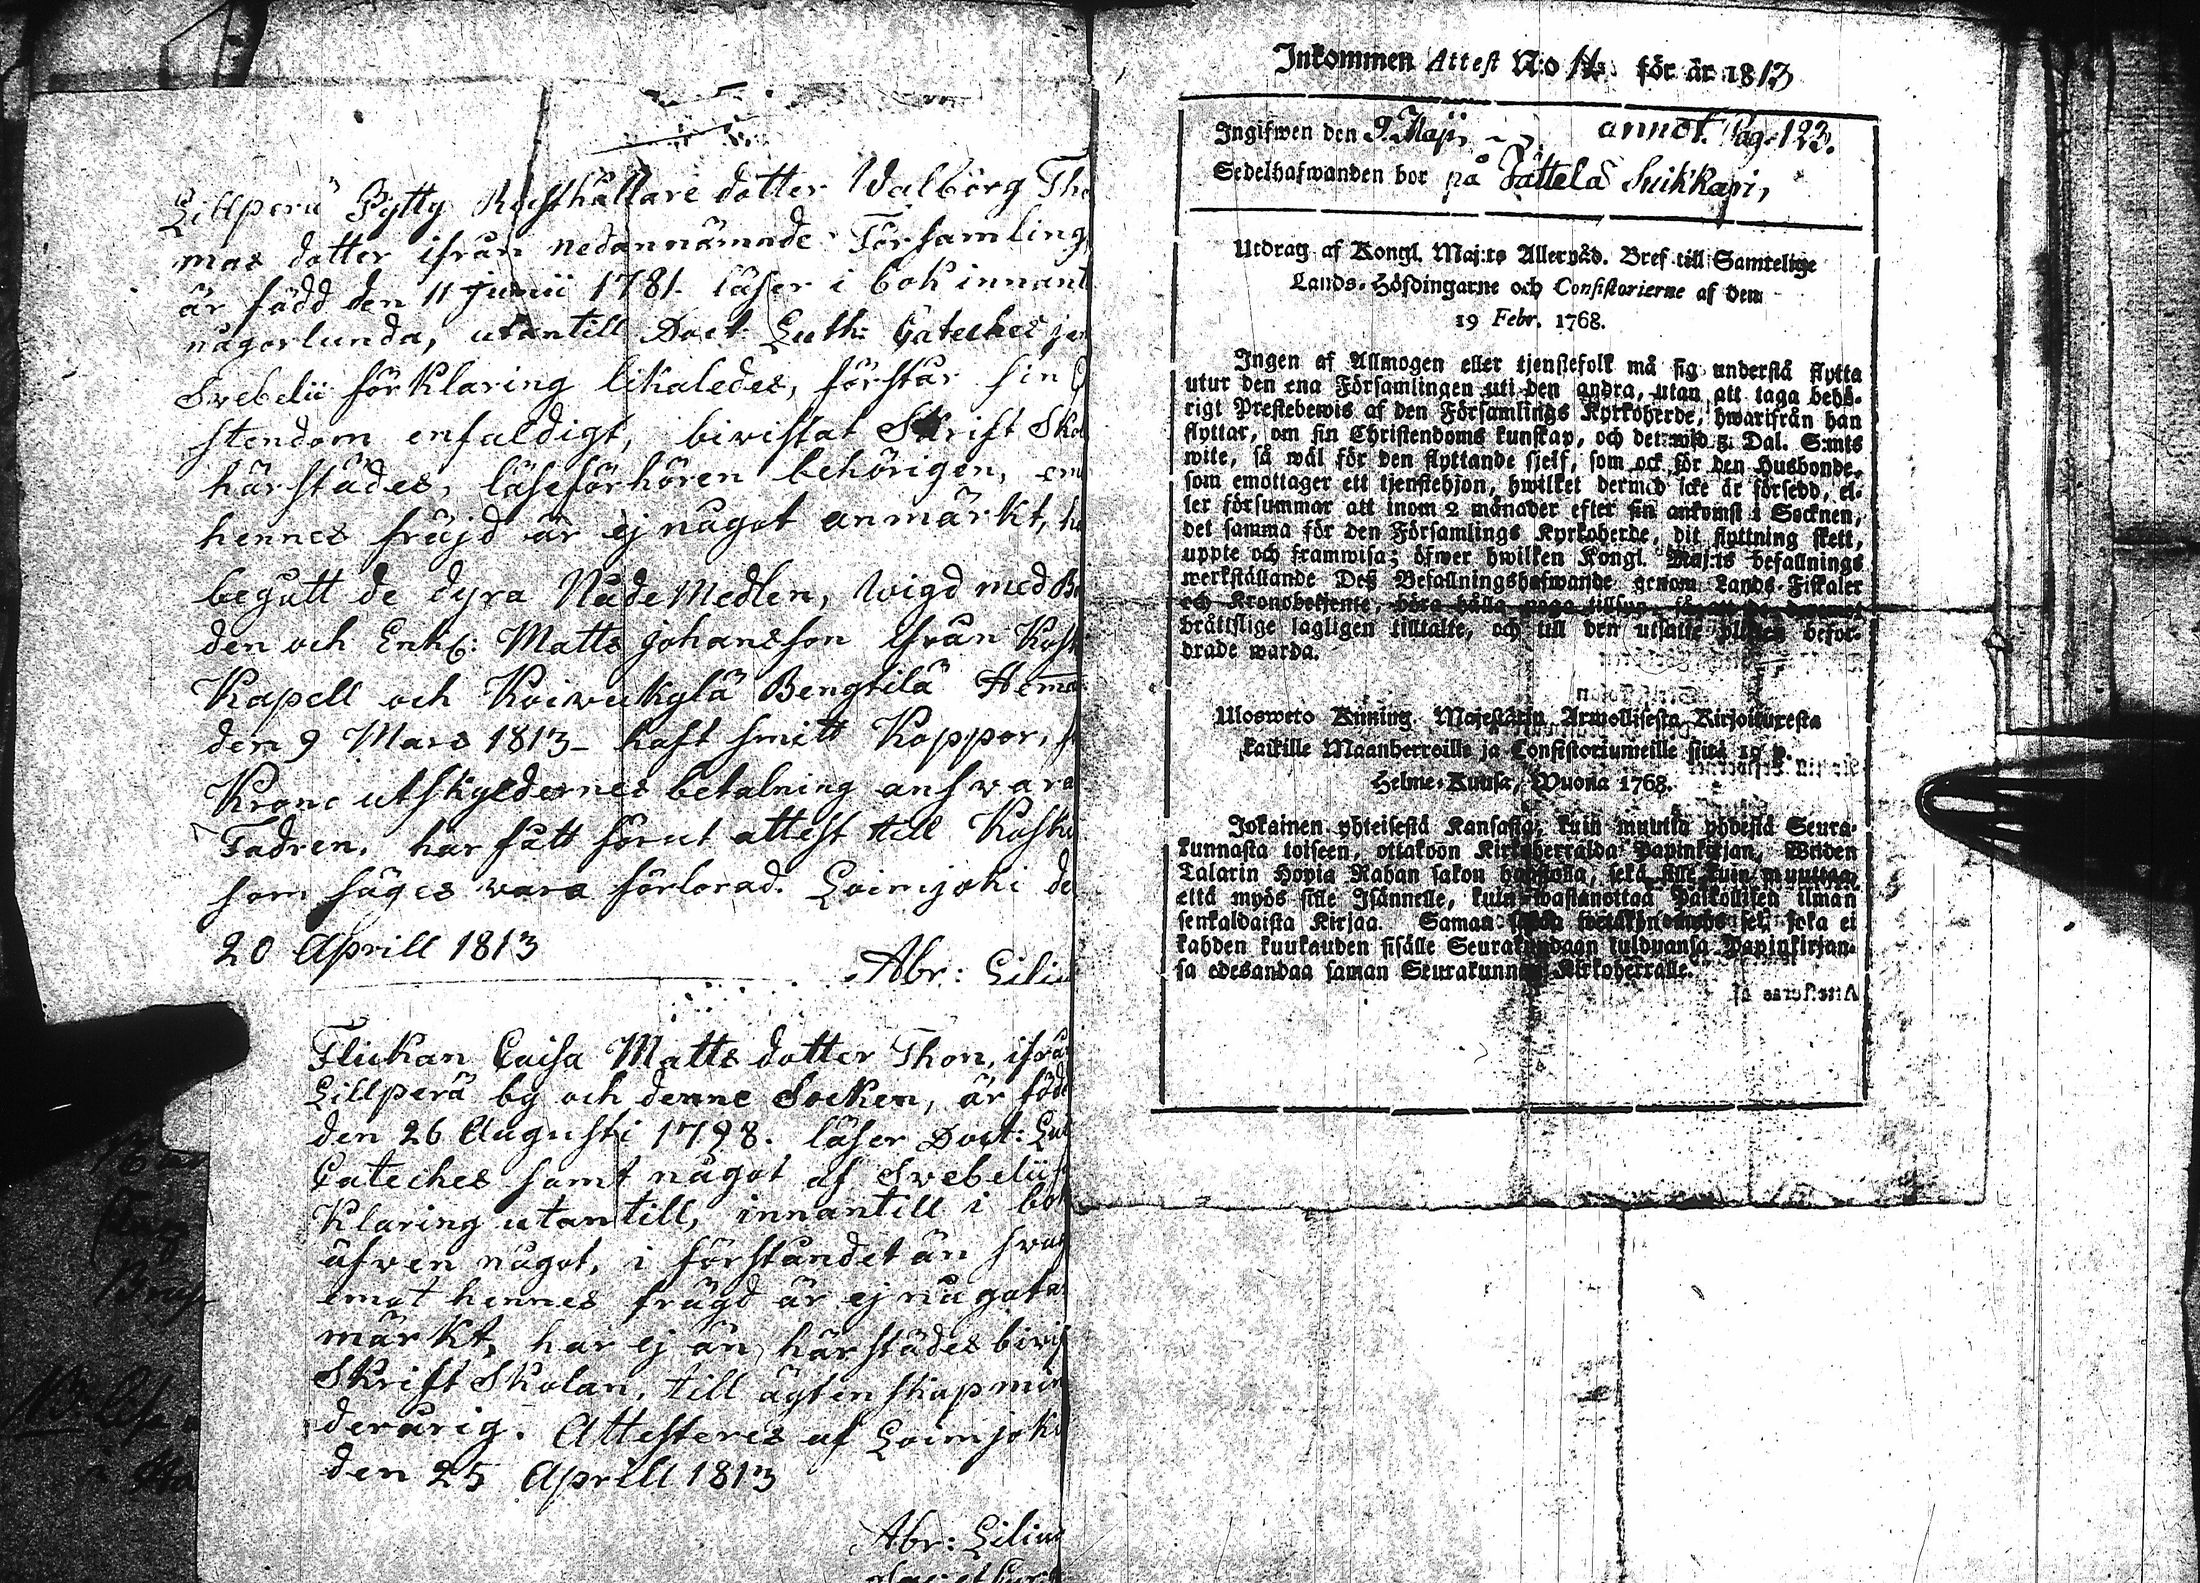 Lillperä Pytty Rusthållare dotter Walborg Tho
mas dotter ifrån nedannämnde Församling,
är född den 11 Junii 1781. läser i bok innant
någorlunda, utantill Doct: Luth: Cateches je
Svebelii förklaring likaledes, förstår sin
stendom enfaldigt, bivistat Skrift Sko
härstädes, läseförhören behörigen, em
hennes fräjd är ej något anmärkt, ha
begått de dyra Nådemedlen, wigd med
den och Enkl: Matts Johansson ifrån Koski
Kapell och Koivukylä Bengtilä Hemm
den 9 Mars 1813 haft smitt Koppor,
Krono utskyldernes betalning answara
Fadren. har fått förut attest till Koski
som säges vara förlorad. Loimjoki de
20 Aprill 1813
Abr: Liliu
Flickan Caisa Matts dotter Thon, ifrå
Lillperä by och denne Socken, är född
den 26 Augusti 1798. läser Doct: Lut
Cateches samt något af Svebelii
klaring utantill, innantill i bok
äfven något, i förståndet än swag
emot hennes frägd är ej något a
märkt, har ej än härstädes bivis
Skrift Skolan, till ägtenskap min
derårig. Attesteres af Loimjoki
den 25 Aprill 1813
Abr: Lilius
Inkommen Attest N:o för år 1813
Ingifwen den 9 Maji, annot. Pag. 123.
Sedelhafwanden bor på Tättelä Suikkari,
Utdrag af Kongl. Maj:ts Allernåd. Bref till Samtelige
Lands-Höfdingarne och Consistorierne af dem
19 Febr. 1768.
Ingen af Allmogen eller tjenstefolk må sig understå flytta
utur den ena Församlingen uti den andra, utan att taga behö-
rigt Prestebewis af den Församlings Kyrkoherde, hwarifrån han
flyttar, om sin Christendoms kunskap, och det wid Dal. S:mts
wite, så wäl för den flyttande sjelf, som ock för den Husbonde,
som emottager ett tjenstehjon, hwilket dermed icke är försedd, el-
ler försummar att inom 2 månader efter sin ankomst i Socknen,
det samma för den Församlings Kyrkoherde, dit flyttning skett,
uppte och framwisa; öfwer hwilken Kongl. Maj:ts befallnings
werkställande Deß Befallningshafwande genom Lands-Fiskaler
och Kronobetjente, böra hålla noga tillsyn,
bråttslige lagligen tilltalte, och till den utsatte plikten befor-
drade warda.
Ulosweto Kuning. Majestätin Armollisesta Kirjoituxesta
kaikille Maanherroille ja Consistoriumeille siitä 19 p.
Helme-Kuusa, Wuona 1768.
Jokainen yhteisestä Kansasta, kuin muutta yhdestä Seura-
kunnasta toiseen, ottakoon Kirkoherralda Papinkirjan, Wiiden
Talarin Hopia Rahan sakon uhalla, sekä sille kuin muuttaa,
että myös sille Isännelle, kuin wastanottaa Palkollisen ilman
senkaldaista Kirjaa. Saman se, joka ei
kahden kuukauden sisälle Seurakundaan tulduansa Papinkirjan-
sa edesandaa saman Seurakunnan Kirkoherralle.